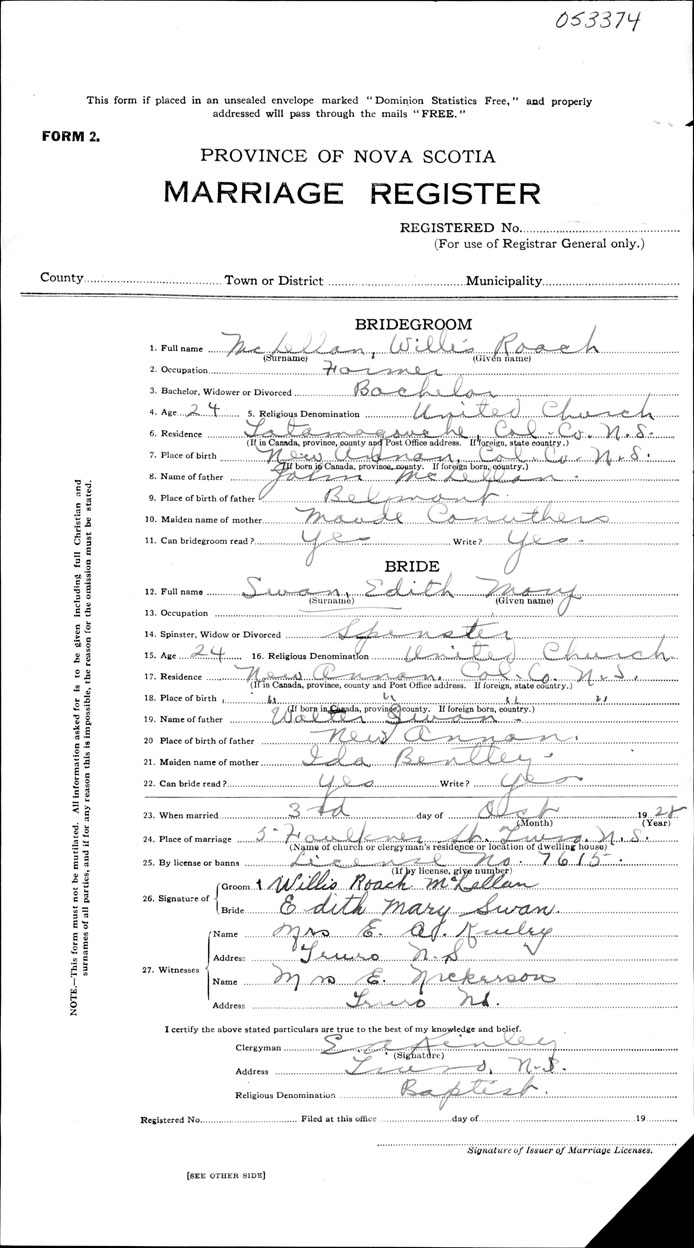 053374
This form if placed in an unsealed envelope marked "Dominion Statistics Free," and properly
addressed will pass through the mails "FREE."
FORM 2.
PROVINCE OF NOVA SCOTIA
MARRIAGE REGISTER
REGISTERED No.
(For use of Registrar General only.)
County Town or District Municipality
BRIDEGROOM
1. Full name McLellan, Willis Roach
(Surname) (Given name)
2. Occupation Farmer
3. Bachelor, Widower or Divorced Bachelor
4. Age 24 5. Religious Denomination United Church
6. Residence Tatamagouche, Col. Co. N.S.
(If in Canada, province, county and Post Office address. If foreign, state country.)
7. Place of birth New Annan, Col. Co. N.S.
(If born in Canada, province, county. If foreign born, country.)
8. Name of father John McLellan.
9. Place of birth of father Belmont.
10. Maiden name of mother Maude Carruthers
11. Can bridegroom read? Yes Write? Yes.
BRIDE
12. Full name Swan, Edith Mary
(Surname) (Given name)
13. Occupation
14. Spinster, Widow or Divorced Spinster
15. Age 24 16. Religious Denomination United Church
17. Residence New Annan, Col. Co. N.S.
(If in Canada, province, county and Post Office address. If foreign, state country.)
18. Place of birth " " " "
(If born in Canada, province, county. If foreign born, country.)
19. Name of father Walter Swan.
20 Place of birth of father New Annan.
21. Maiden name of mother Ida Bentley.
22. Can bride read? Yes Write? Yes
23. When married 3rd day of Oct 1928
(Month) (Year)
24. Place of marriage 5 Faulkner St. Truro, N.S.
(Name of church or clergyman's residence or location of dwelling house)
25. By license or banns License No. 7615.
(If by license, give number)
26. Signature of Groom Willis Roach McLellan
Bride Edith Mary Swan.
27. Witnesses
Name Mrs E. A. Kinley
Address Truro N.S
Name Mrs E. Nickerson
Address Truro NS.
I certify the above stated particulars are true to the best of my knowledge and belief.
Clergyman E. A. Kinley
(Signature)
Address Truro, N.S.
Religious Denomination Baptist.
Registered No. Filed at this office day of 19
Signature of Issuer of Marriage Licenses.
[SEE OTHER SIDE]
NOTE.—This form must not be mutilated. All information asked for is to be given including full Christian and
surnames of all parties, and if for any reason this is impossible, the reason for the omission must be stated.